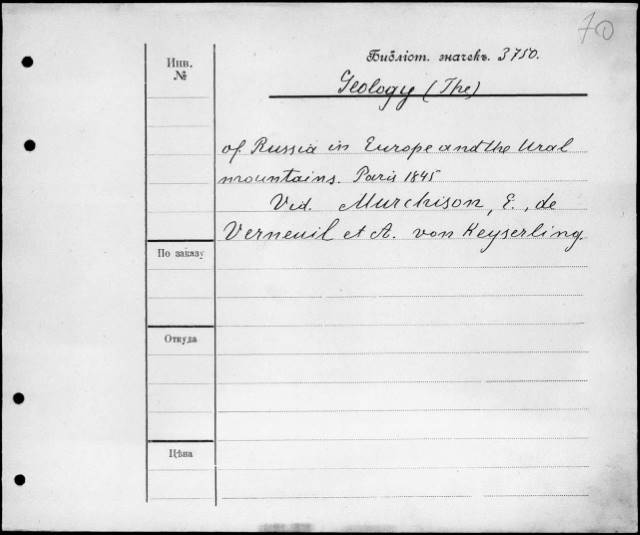 70
Библіот. значекъ. 3750.
Инв.
№
Geology (The)
of Russia in Europe and the Ural
mountains. Paris 1845
Vid. Murchison, E., de
Verneuil et A. von Keyserling.
По заказу
Откуда
Цѣна